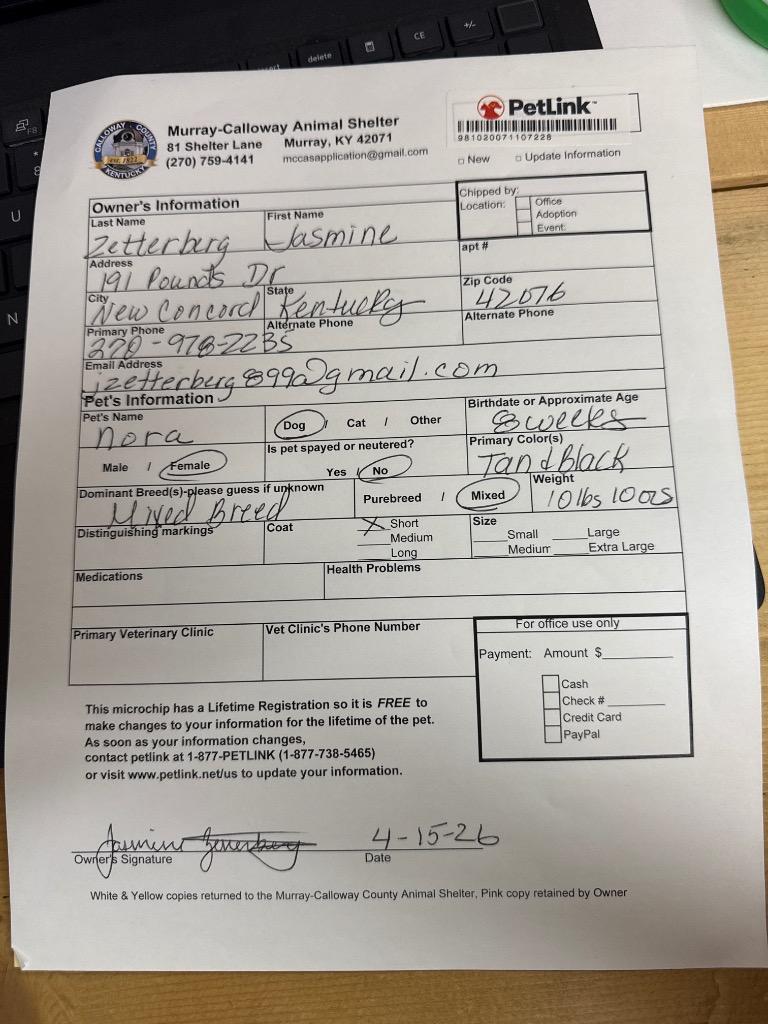 delete
CE
+/-
F8
*
8
U
N
CALLOWAY COUNTY
EST. 1822
KENTUCKY
Murray-Calloway Animal Shelter
81 Shelter Lane Murray, KY 42071
(270) 759-4141 mccasapplication@gmail.com
PetLink
981020071107228
New Update Information
Chipped by:
Location: Office
Adoption
Event:
Owner's Information
Last Name First Name
Zetterberg Jasmine
Address apt #
191 Pounds Dr
City State Zip Code
New Concord Kentucky 42076
Primary Phone Alternate Phone Alternate Phone
270-978-2235
Email Address
jzetterberg899@gmail.com
Pet's Information
Pet's Name Dog / Cat / Other Birthdate or Approximate Age
nora 8 weeks
Is pet spayed or neutered? Primary Color(s)
Male / Female Yes / No Tan & Black
Dominant Breed(s)-please guess if unknown Purebreed / Mixed Weight
Mixed Breed 10 lbs 10 ozs
Distinguishing markings Coat X Short Size
Medium Small Large
Long Medium Extra Large
Medications Health Problems
Primary Veterinary Clinic Vet Clinic's Phone Number
For office use only
Payment: Amount $
Cash
Check #
Credit Card
PayPal
This microchip has a Lifetime Registration so it is FREE to
make changes to your information for the lifetime of the pet.
As soon as your information changes,
contact petlink at 1-877-PETLINK (1-877-738-5465)
or visit www.petlink.net/us to update your information.
Jasmine Zetterberg 4-15-26
Owner's Signature Date
White & Yellow copies returned to the Murray-Calloway County Animal Shelter, Pink copy retained by Owner